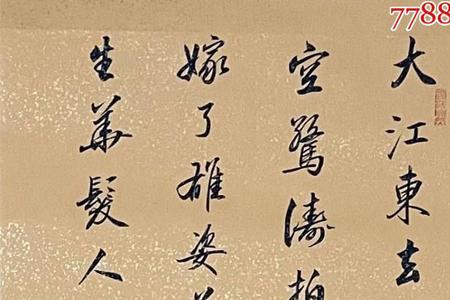 大江東去
空驚濤拍
嫁了雄姿
生華髮人
7788